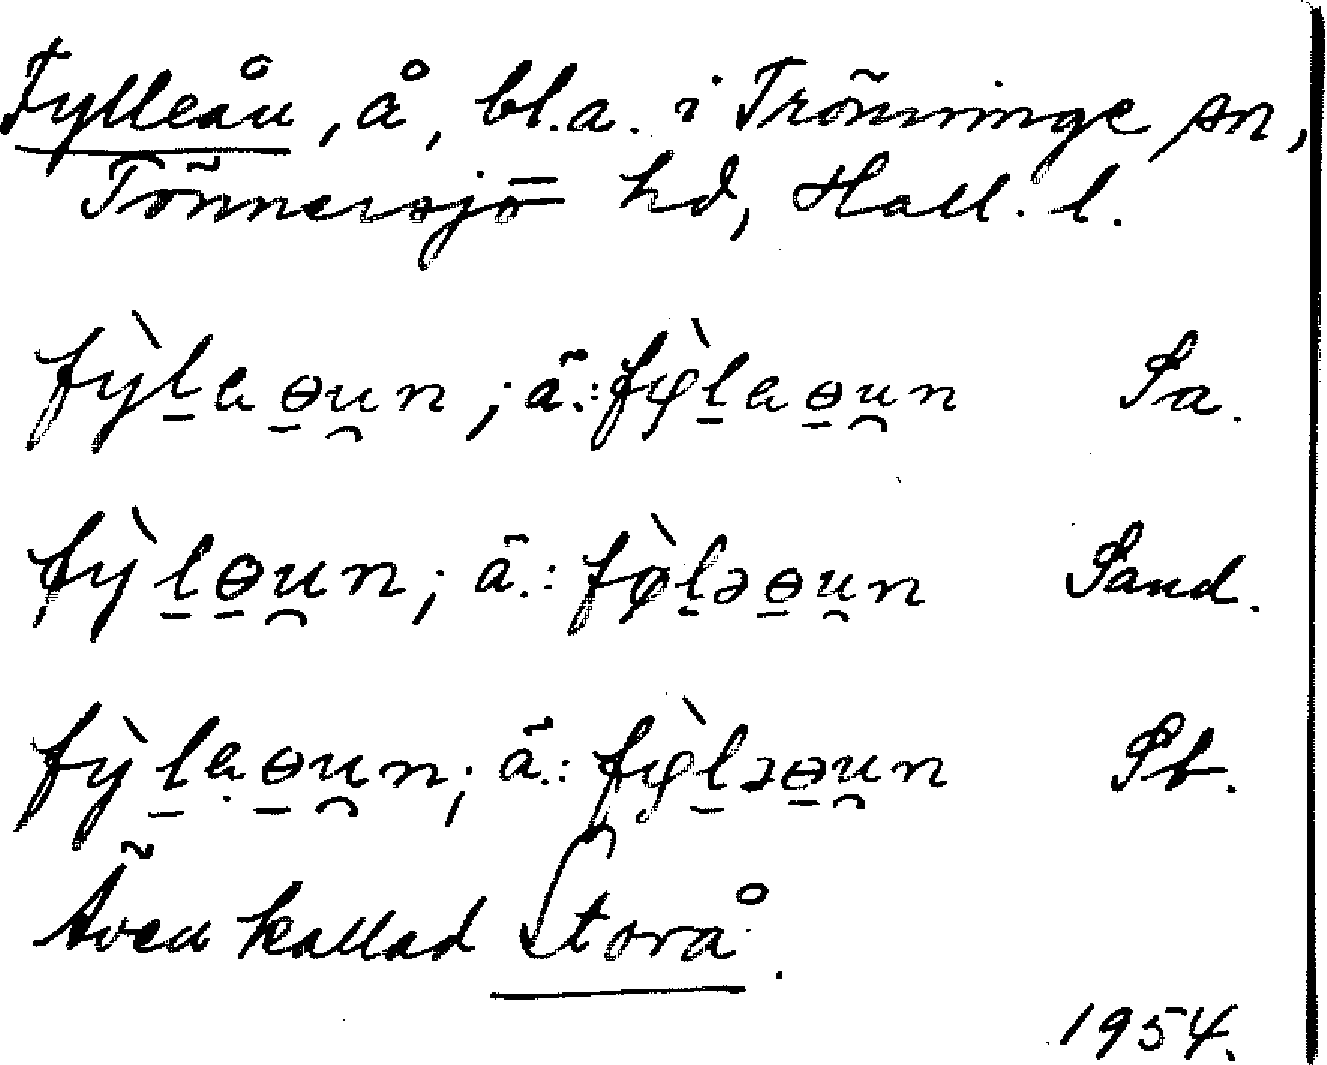 Fylleån, å, bl.a. i Trönninge sn,
Tönnersjö hd, Hall. l.
fỳl̲a ɵ̲u̯n ; ä.: fø̀l̲aɵ̲u̯n Sa.
fỳl̲ɵ̲u̯n ; ä.: fø̀l̲əɵ̲u̯n Sand.
fỳl̲ạɵ̲u̯n ; ä.: fø̀l̲əɵ̲u̯n Sb.
Även kallad Storå.
1954.